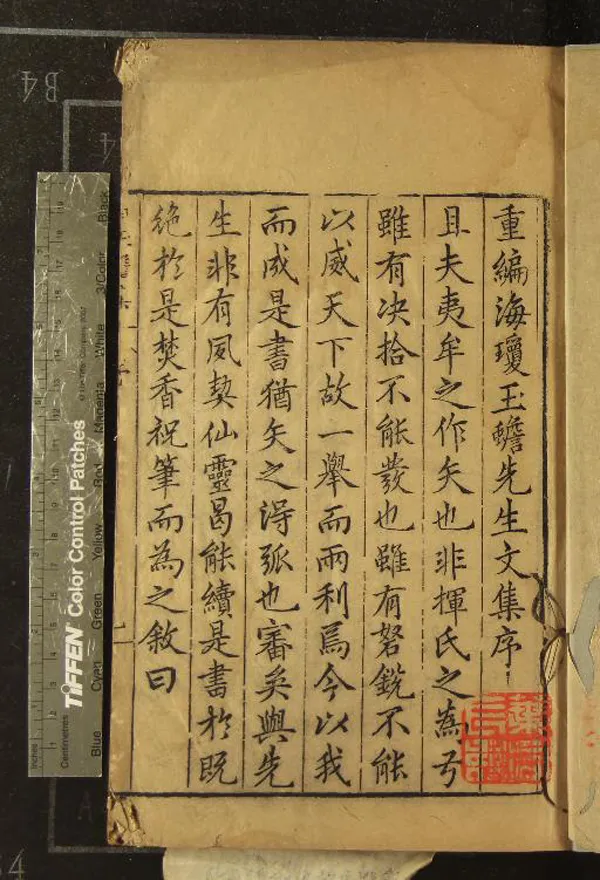 重編海瓊玉蟾先生文集序
且夫夷牟之作矢也非揮氏之為弓
雖有决拾不能發也雖有弩銳不能
以威天下故一舉而兩利焉今以我
而成是書猶矢之得弧也審矣與先
生非有夙契仙靈曷能續是書於既
絶於是焚香祝筆而為之敘曰
B4
TIFFEN Color Control Patches
Blue
Cyan
Green
Yellow
Red
Magenta
White
3/Color
Black
Inches
Centimetres